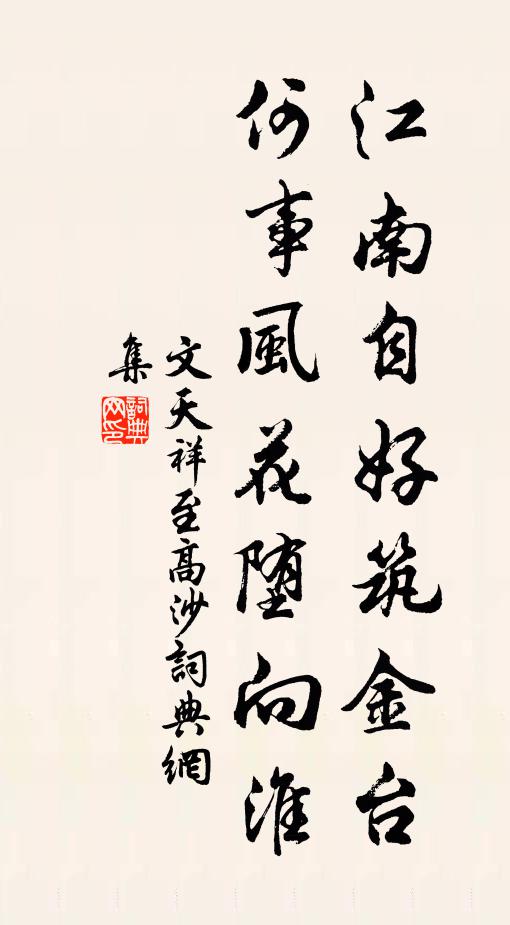 江南自好筑金台
何事風花堕向淮
文天祥至高沙詞典網
集
詞典網印